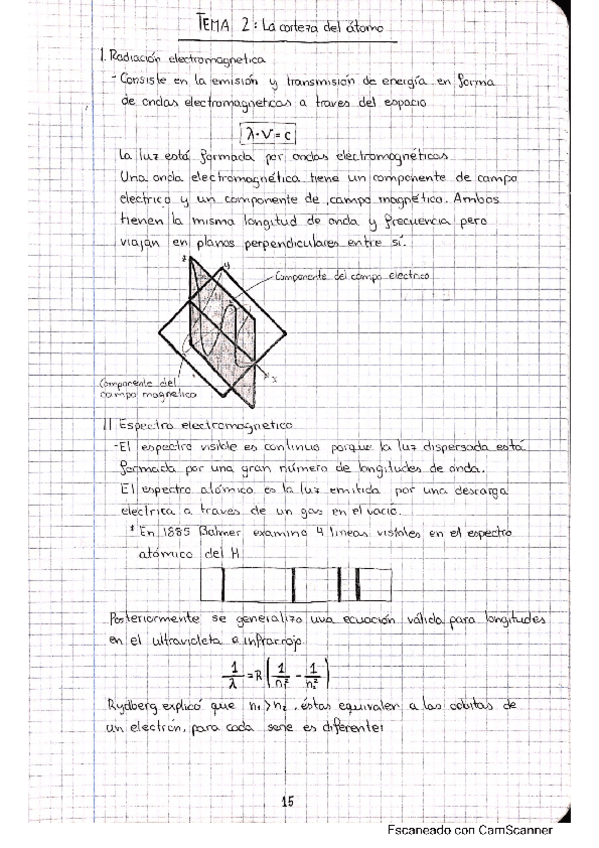 TEMA 2: La corteza del átomo
1. Radiación electromagnetica
- Consiste en la emisión y transmisión de energía en forma
de ondas electromagneticas a traves del espacio
λ·ν = c
La luz está formada por ondas electromagnéticas
Una onda electromagnética tiene un componente de campo
electrico y un componente de campo magnético. Ambos
tienen la misma longitud de onda y frecuencia pero
viajan en planos perpendiculares entre sí.
z
y
Componente del campo electrico
x
Componente del
campo magnetico
1.1 Espectro electromagnetico
- El espectro visible es continuo porque la luz dispersada está
formada por una gran número de longitudes de onda.
El espectro atómico es la luz emitida por una descarga
electrica a traves de un gas en el vacío.
* En 1885 Balmer examino 4 lineas visibles en el espectro
atómico del H
Posteriormente se generalizo una ecuación válida para longitudes
en el ultravioleta e infrarrojo.
1/λ = R (1/n₁² - 1/n₂²)
Rydberg explicó que n₁ > n₂, éstas equivalen a las orbitas de
un electrón, para cada serie es diferente:
15
Escaneado con CamScanner